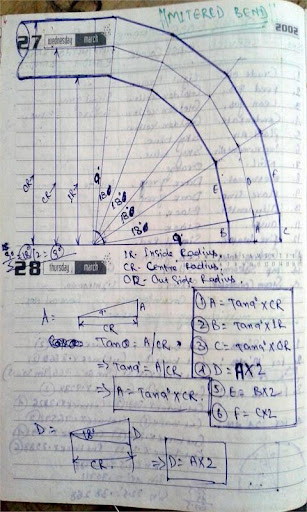 "MITERED BEND"
27 wednesday march 2002
OR
CR
IR
9°
18°
18°
18°
18°
9°
E D F
B A C
28 thursday march
IR- Inside Radius.
CR- Centre Radius.
OR- Out Side Radius.
A=
9°
A
CR
Tanθ = A/CR
⇒ Tan9° = A/CR
⇒ A = Tan9° × CR.
① A = Tan9° × CR
② B = Tan9° × IR
③ C = Tan9° × OR
④ D = A X 2
⑤ E = B X 2
⑥ F = C X 2
D=
18°
D.
CR.
⇒ D = A X 2